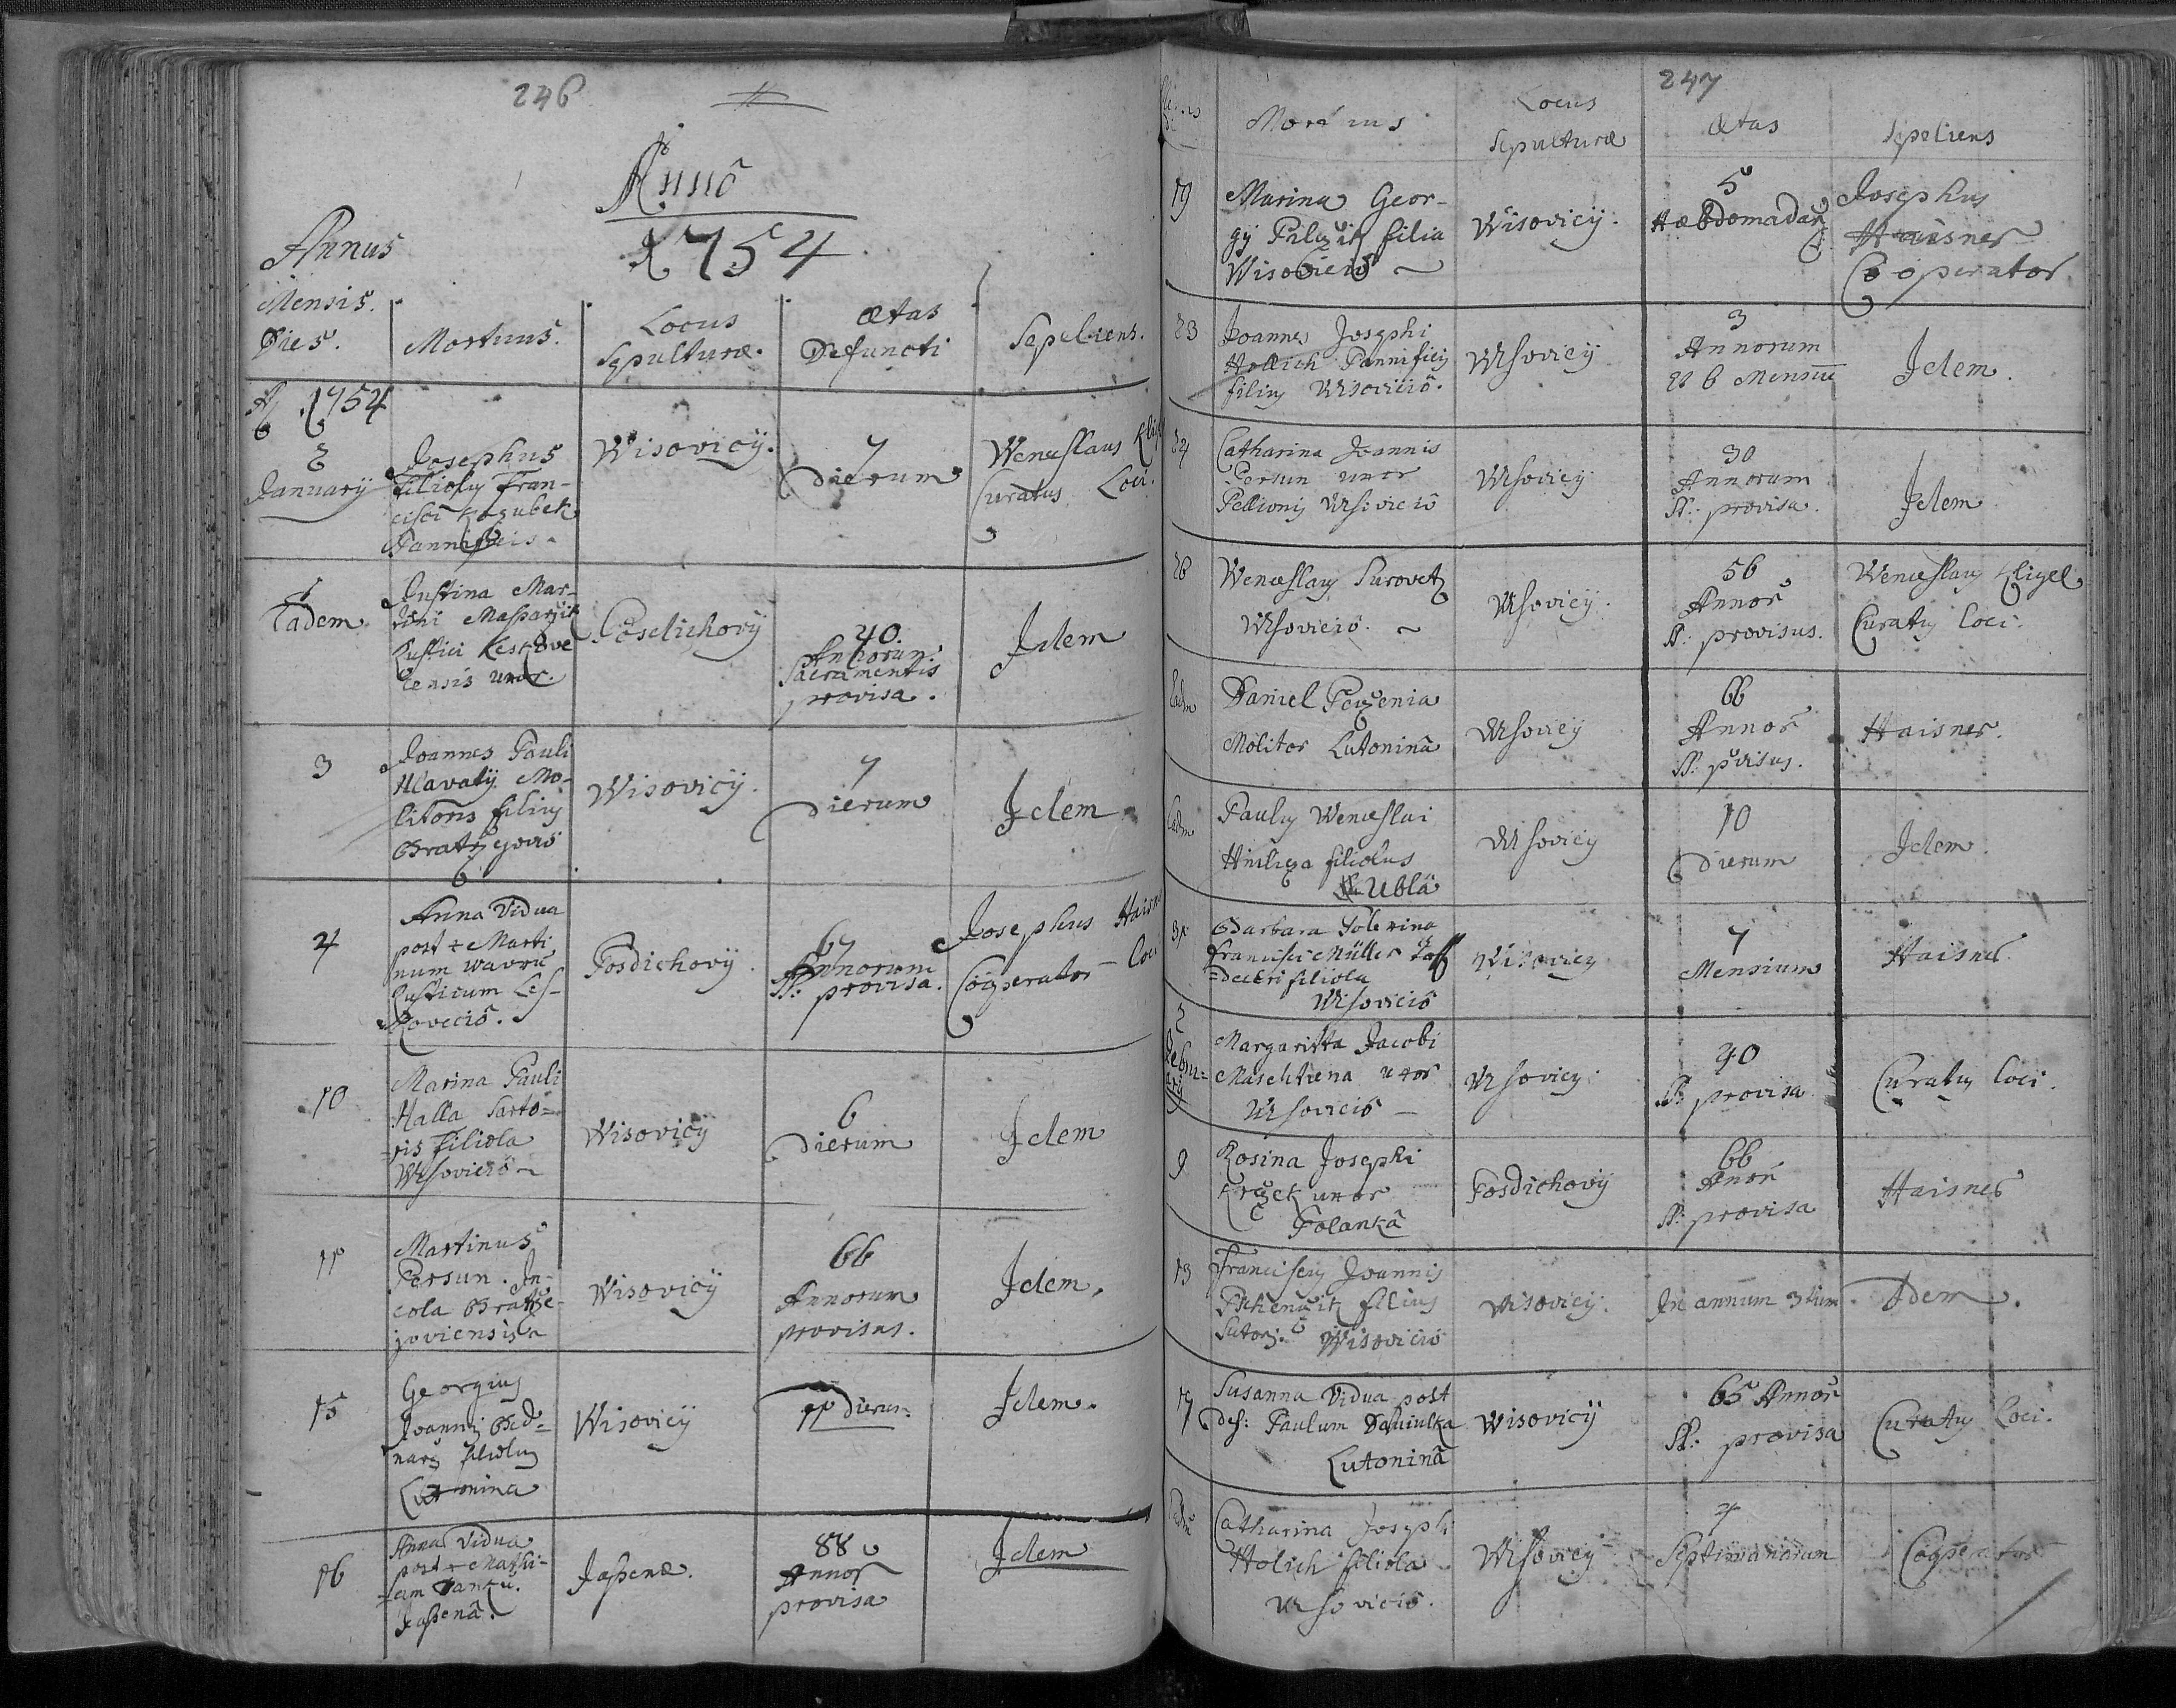 246
Anno
1754
Annus
Mensis.
Dies.
Mortuus.
Locus
Sepulturæ.
Ætas
Defuncti
Sepeliens.
A 1754
2
January
Josephus
filiolus Fran-
cisci Kozubek
Pannificis.
Wisovicÿ.
7
Dierum
Wenceslaus Kligel
Curatus Loci.
Eadem
Justina Mar-
tini
Rustici Leskove
censis uxor.
Posdichovÿ
40.
Annorum
Sacramentis
provisa.
Idem
3
Joannes Pauli
Hlavatÿ Mo-
litoris filius
Bratrzegovio
Wisovicÿ.
7
Dierum
Idem
4
Anna Vidua
post + Marti
num Wavru
Rusticum Les-
kovecio.
Posdichovÿ.
67
Annorum
SS: provisa.
Josephus Haisner
Cooperator Loci
10
Marina Pauli
Halla Sarto-
ris filiola
Wisovicio
Wisovicÿ
6
Dierum
Idem
11
Martinus
Persun. In-
cola Bratrze-
joviensis
Wisovicÿ
66
Annorum
provisus.
Idem.
15
Georgius
Joannis Bed-
narz filiolus
Lutonina
Wisovicÿ
11 Dierum
Idem.
16
Anna Vidua
post + Mathi-
am Jancu.
Jassena.
Jassenæ.
88
Annor
provisa
Idem
247
Mortuus
Locus
Sepulturæ
Ætas
Sepeliens
19
Marina Geor-
gÿ filia
Wisovicio
Wisovicÿ.
5
Hæbdomadar
Josephus
Haisner
Cooperator
23
Joannes Josephi
Hollich Pannificis
filius Wisovicio.
Wisovicÿ
3
Annorum
et 6 Mensiu
Idem.
24
Catharina Joannis
Persun uxor
Pellionis Wisovicio
Wisovicÿ
30
Annorum
SS: provisa.
Idem
26
Wenceslaus Surovetz
Wisovicio.
Wisovicÿ.
56
Annor
SS: provisus.
Wenceslaus Kligel
Curatus Loci.
Eadem
Daniel Peczenia
Molitor Lutonina
Wisovicÿ
66
Annor
SS: pvisus.
Haisner.
Eadem
Paulus Wenceslai
filiolus
Ubla
Wisovicÿ
10
Dierum
Idem.
31
Barbara Polexina
Francisci Müller
filiola
Wisovicio
Wisovicÿ
7
Mensium
Haisner
2
Februarÿ
Margaritta Jacobi
uxor
Wisovicio
Wisovicÿ
40
SS: provisa
Curatus Loci.
9
Rosina Josephi
uxor
Polanka
Posdichovÿ
66
Anor
SS: provisa
Haisner
13
Franciscus Joannis
filius
Sutoris. Wisovicio
Wisovicÿ.
In annum 3tium
Idem.
17
Susanna Vidua post
def: Paulum
Lutonina
Wisovicÿ
65 Annor
SS: provisa
Curatus Loci.
Eadem
Catharina Joseph
Holich filiola
Wisovicio.
Wisovicÿ
4
Septimanarum
Cooperator